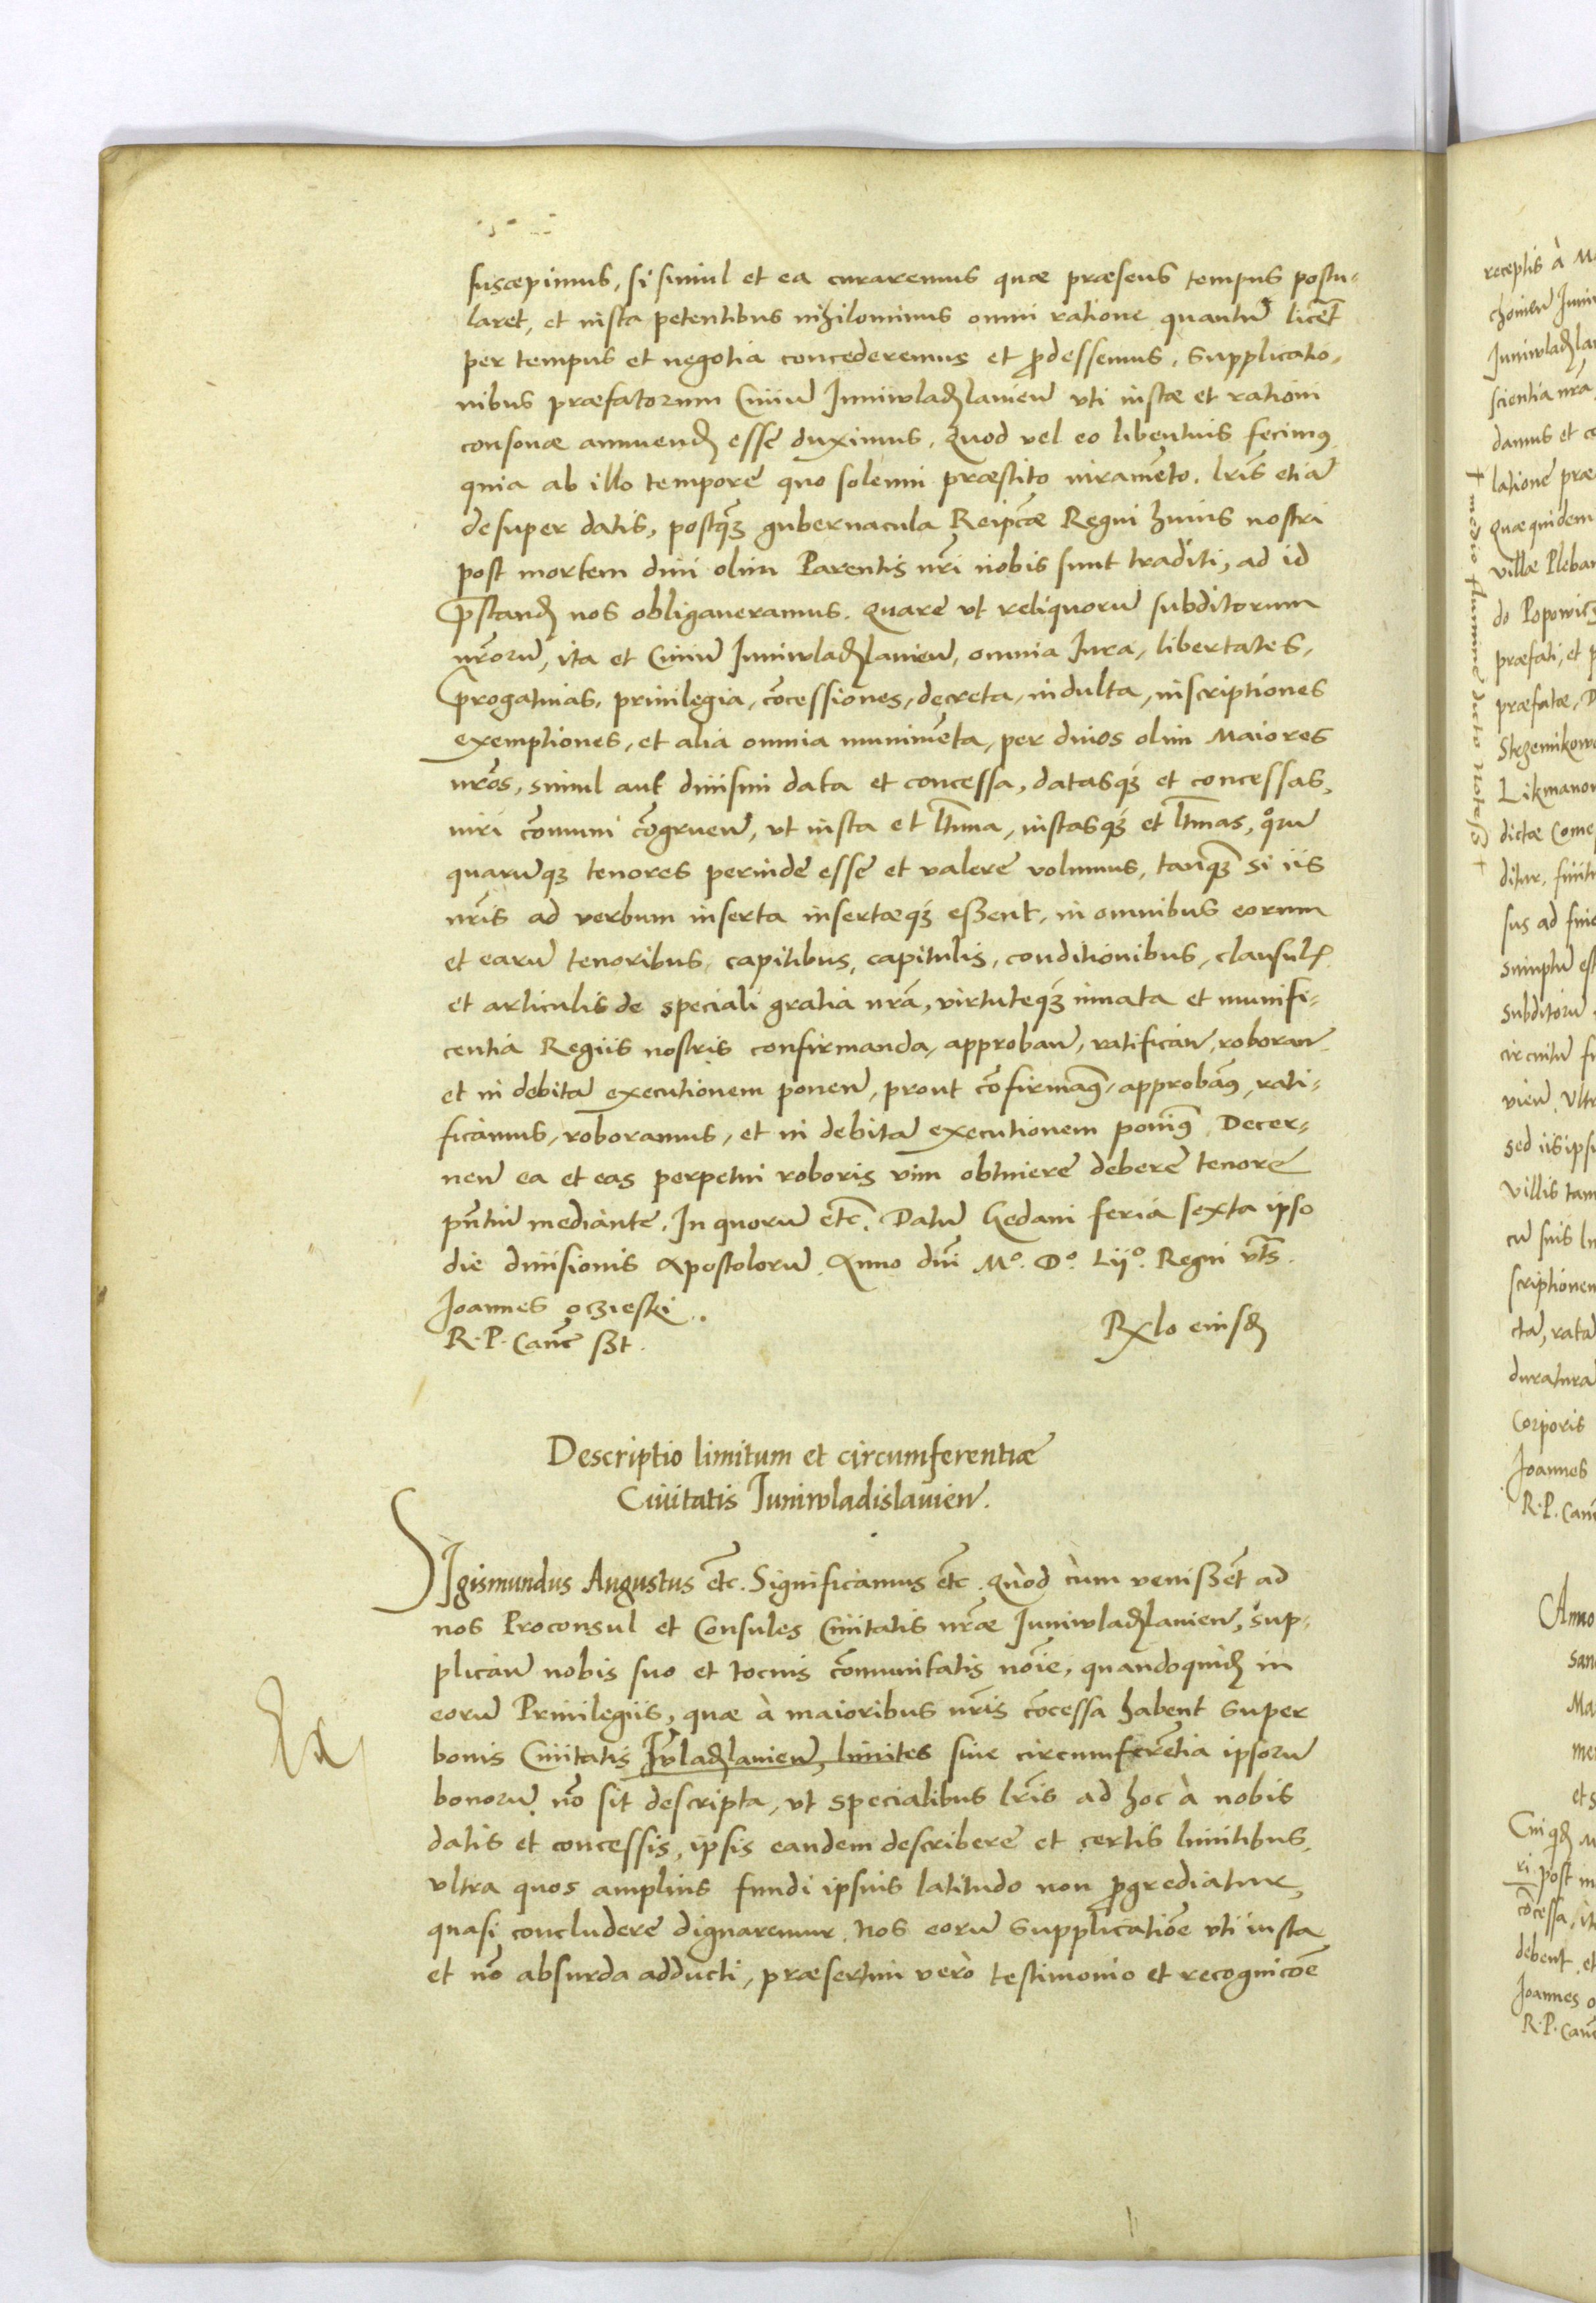 suscæpimus, si simul et ea curaremus quæ præsens tempus postu-
laret, et iusta petentibus nihilominus omni ratione quantũ licẽt
per tempus et negotia concederemus et p̃dessemus. Supplicatio-
nibus præfatorum Ciuiũ Iuniwladzlauien̄ vti iustæ et rationi
consonæ annuend̄ esse duximus. Quod vel eo libentius fecimus
quia ab illo tempore quo solemni præstito iuramẽto. lr̃is etiã
desuper datis, postq̃ꝫ gubernacula Reipcæ Regni huius nostri
post mortem diui olim Parentis nr̃i nobis sunt traditi, ad id
p̃stand̄ nos obligaueramus. Quare vt reliquorũ subditorum
nr̃orũ, ita et Ciuiũ Iuniwladzlauien̄, omnia Iura, libertates,
p̃rogatiuas, priuilegia, cõcessiones, decreta, indulta, inscriptiones
exemptiones, et alia omnia munimẽta, per diuos olim Maiores
nr̃os, simul aut diuisim data et concessa, datasq̃ꝫ et concessas,
iuri cõmuni cõgruen̄, vt iusta et ltĩma, iustasq̃ꝫ et ltĩmas, quorũ
quarũqꝫ tenores perinde esse et valere volumus, tanq̃ꝫ si iis
nr̃is ad verbum inserta insertæq̃ꝫ eßent, in omnibus eorum
et earũ tenoribus, capitibus, capitulis, conditionibus, clausulis
et articulis de speciali gratia nr̃a, virtuteq̃ꝫ innata et munifi-
centia Regiis nostris confirmanda, approban̄, ratifican̄, roboran̄
et in debitã executionem ponen̄, prout cõfirmam9, approbam9, rati-
ficamus, roboramus, et in debitã executionem ponim9. Decer-
nen̄ ea et eas perpetui roboris vim obtinere debere tenore
pñtiũ mediante. In quorũ etc̃. Datũ Gedani feria sexta ipso
die diuisionis Apostolorũ. Anno dñi Mº. Dº. Lijº. Regni vts̃.
Joannes oczieski
R. P. Canc̃ sßt.
Rxlo eiusd̄
Descriptio limitum et circumferentiæ
Ciuitatis Iuniwladislauien̄.
SIgismundus Augustus etc̃. Significamus etc̃. Quòd cùm venißẽt ad
nos Proconsul et Consules Ciuitatis nr̃æ Iuniwladzlauien̄, sup-
plican̄ nobis suo et tocius cõmunitatis noĩe, quandoquid̄ in
eorũ Priuilegiis, quæ à maioribus nr̃is cõcessa habent super
bonis Ciuitatis Iw̃ladzlauien̄, limites siue circumferẽtia ipsorũ
bonorũ nõ sit descripta, vt specialibus lr̃is ad hoc à nobis
datis et concessis, ipsis eandem describere et certis limitibus,
vltra quos amplius fundi ipsius latitudo non p̃grediatur,
quasi concludere dignaremur. Nos eorũ supplicatiõe vti iusta
et nõ absurda adducti, præsertim verò testimonio et recognicõe
† medio flumine dicto Noteß †
receptis à
Iuniwladzla
scientia nr̃a
damus et
latione præ
Quæquidem
villæ Pleban
do Popowicz
præfati, et p
præfatæ, D
Strzemikow
Likmanow
dictæ Come
ditur, finit
sus ad fin
sumptũ est
Subditorũ
circuitũ
vien̄. Vltr
sed iis ips
villis tam
cũ suis
scriptionem
ctã, ratã
duratura
Corporis
Joannes
R. P. Canc̃
Anno
san
Ma
et s
post m
cõcessa, it
debent, et
Joannes o
R. P. Canc̃